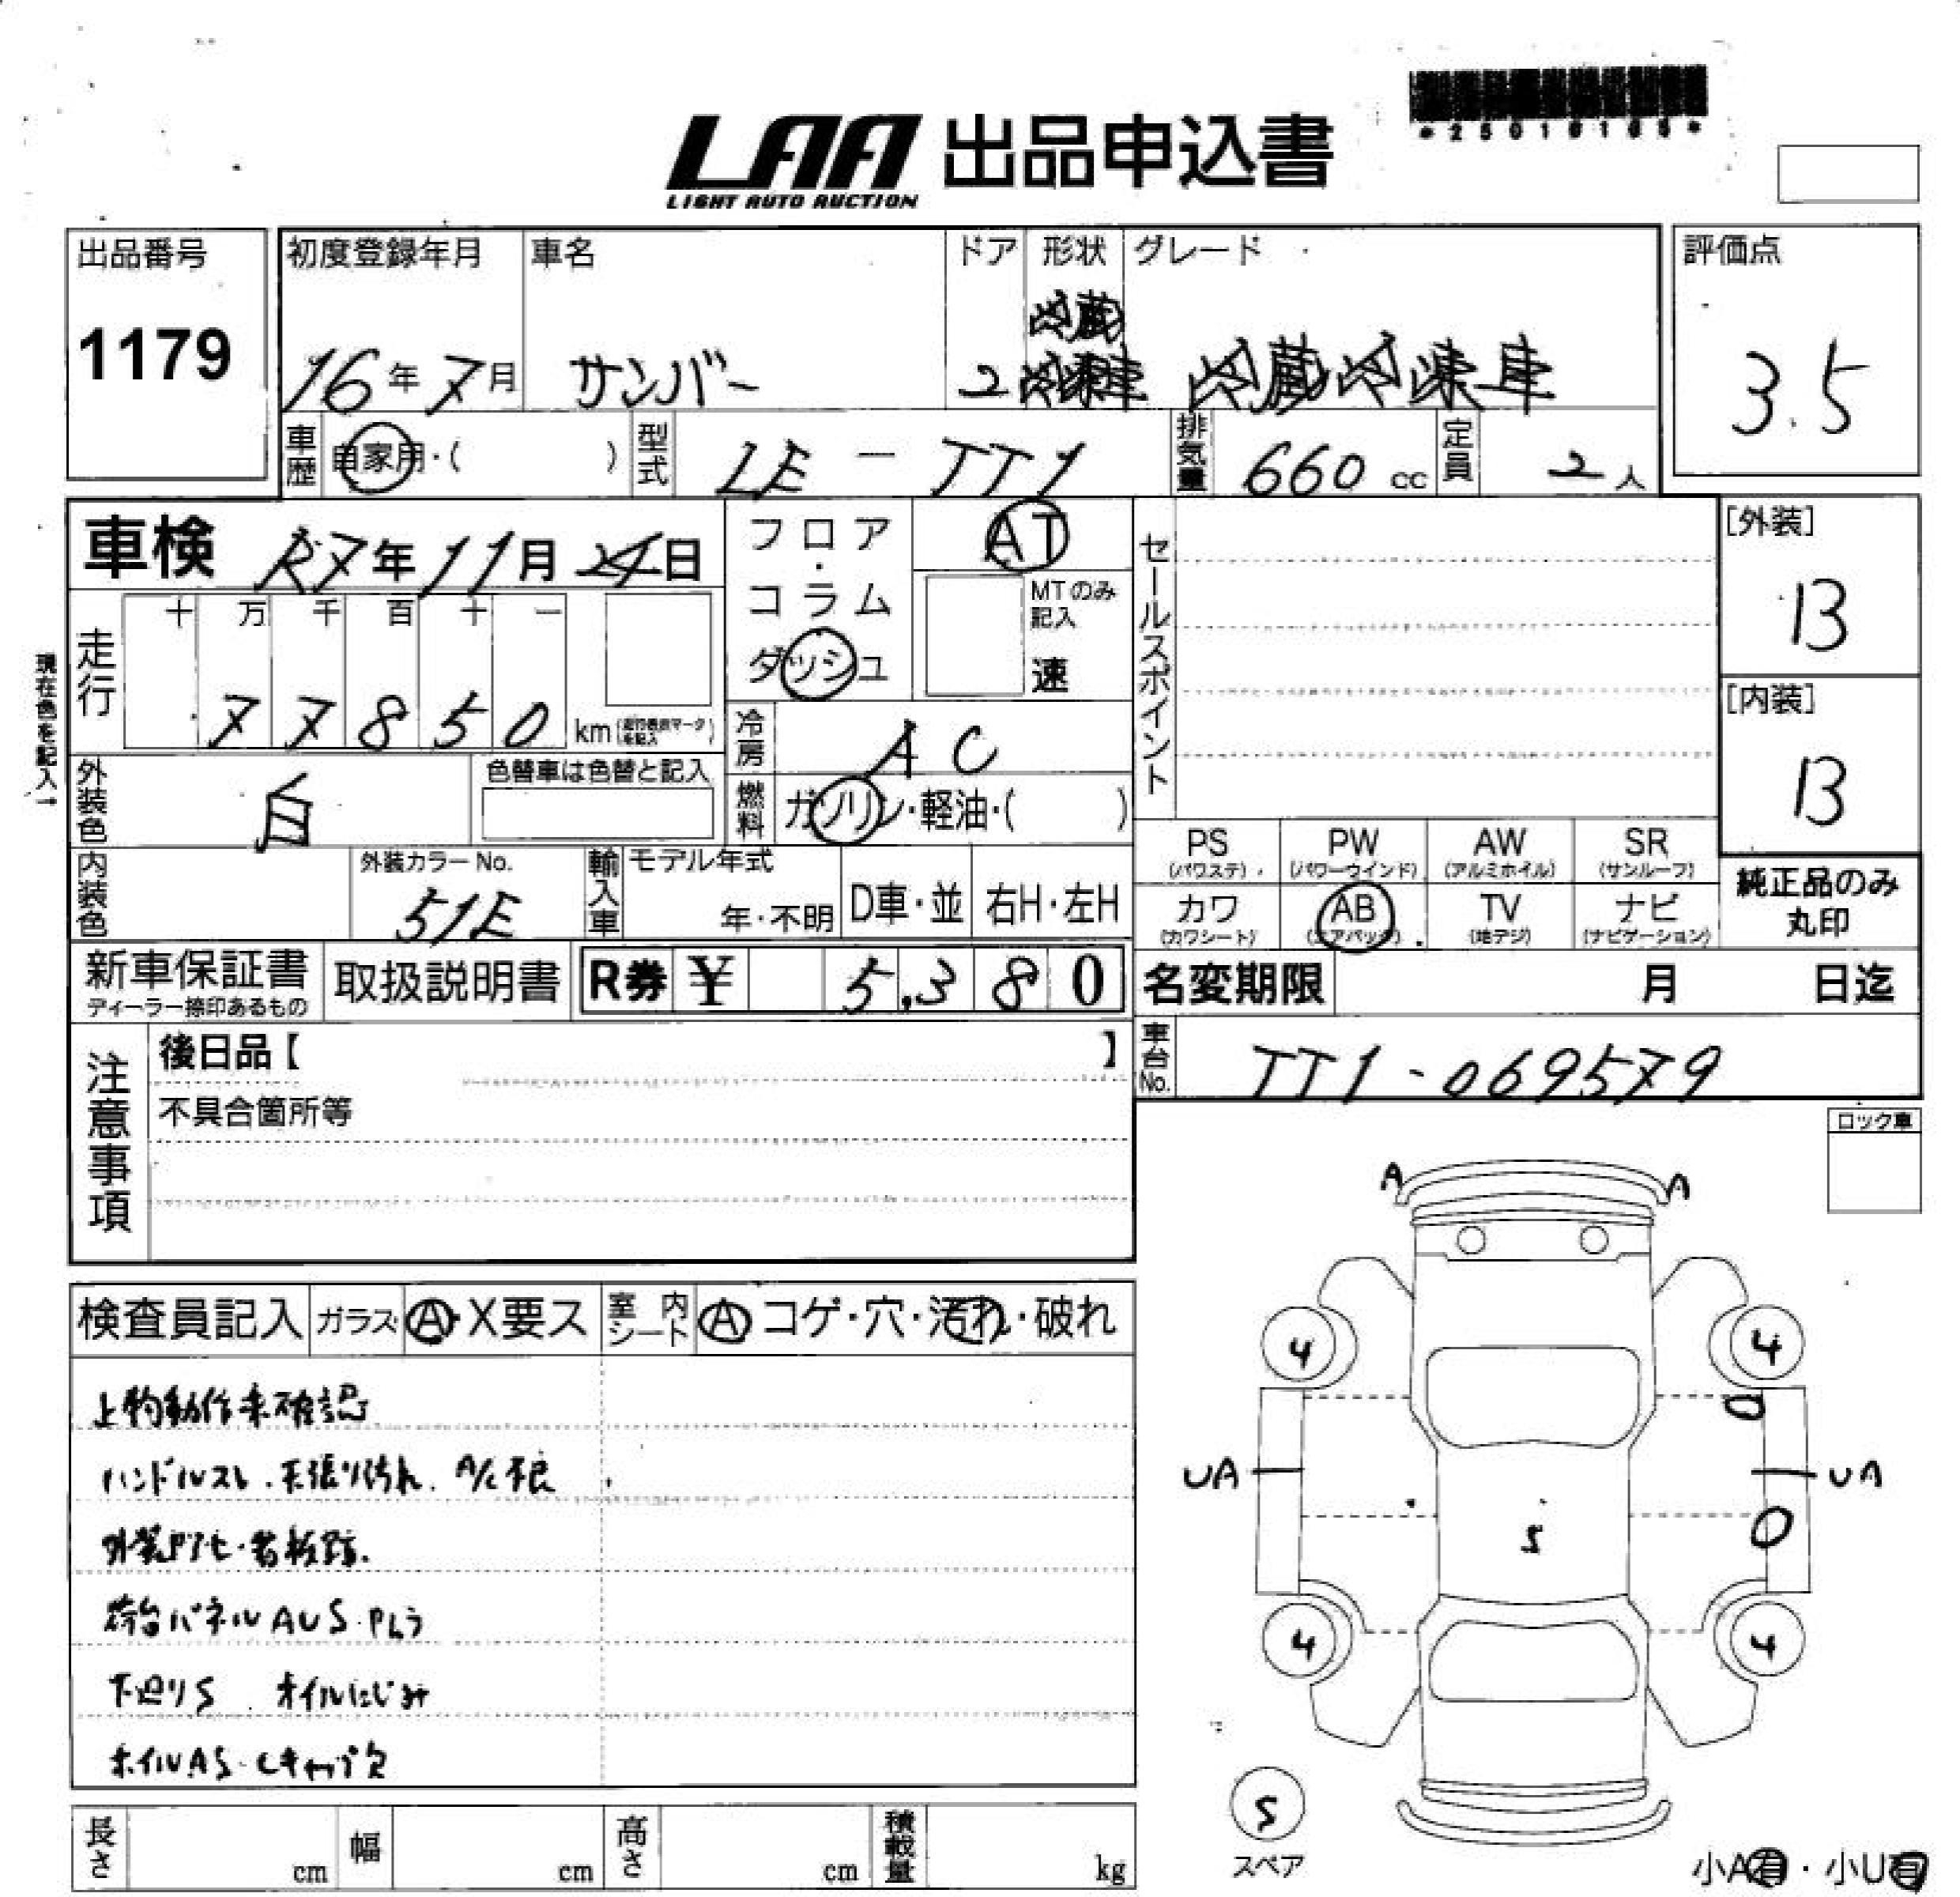 *25010165*
LAA 出品申込書
LIGHT AUTO AUCTION
出品番号 初度登録年月 車名 ドア 形状 グレード 評価点
1179 16年7月 サンバー 2 冷蔵冷凍車 冷蔵冷凍車 3.5
車歴 自家用・( ) 型式 LE-TT1 排気量 660 cc 定員 2人
車検 R7年11月24日 フロア・コラム ダッシュ AT セールスポイント [外装]
MTのみ記入 速 13
走行 十 万 千 百 十 一 [内装]
77850 km(走行表示マークを記入) 冷房 AC 13
現在色を記入→
外装色 白 色替車は色替と記入 燃料 ガソリン・軽油・( )
PS PW AW SR
(パワステ) (パワーウインド) (アルミホイル) (サンルーフ) 純正品のみ
内装色 外装カラーNo. 51E 輸入車 モデル年式 年・不明 D車・並 右H・左H 丸印
カワ AB TV ナビ
(カワシート) (エアバック) (地デジ) (ナビゲーション)
新車保証書 取扱説明書 R券 ¥ 5,380 名変期限 月 日迄
ディーラー捺印あるもの
注意事項 後日品【 】 車台No. TT1-069579
不具合箇所等
ロック車
A A
検査員記入 ガラス A・X要ス 室内シート A コゲ・穴・汚れ・破れ
4 4
上物動作未確認
O
ハンドルスレ.天張り汚れ. A/C不良
UA UA
外装P7セ・看板跡.
S O
荷台パネルAUS・Pムラ
4 4
下廻りS オイルにじみ
ホイルAS・Cキャップ欠
S
スペア
長さ cm 幅 cm 高さ cm 積載量 kg
小A有・小U有